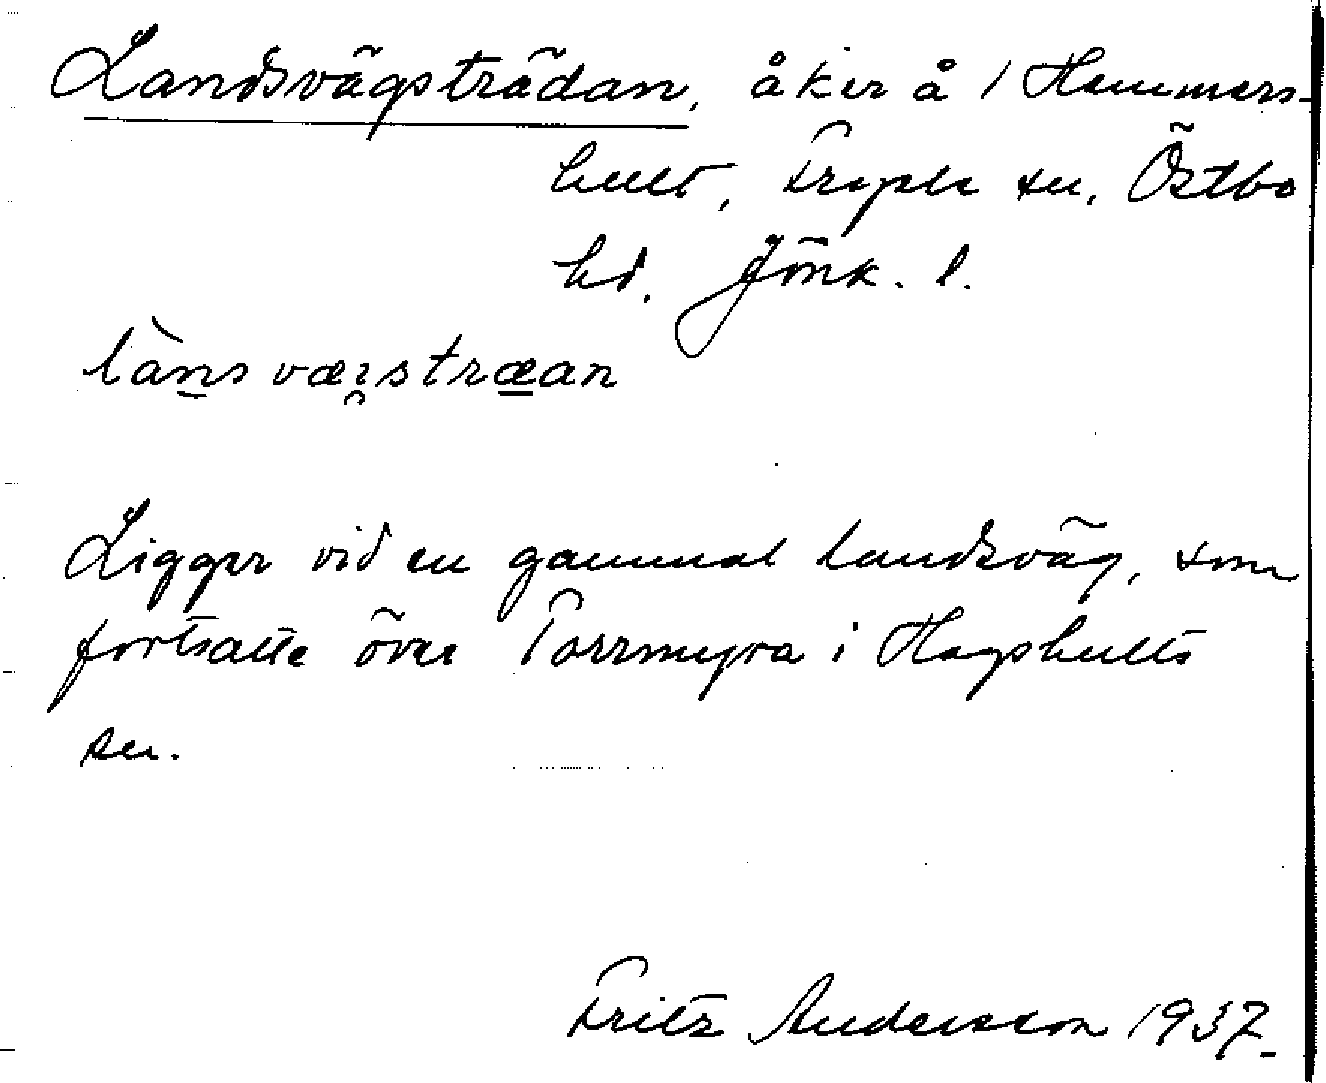 Landsvägsträdan, åker å 1 Hammars-
hult, Fryele sn, Östbo
hd. Jönk. l.
lànsvæıstræan
Ligger vid en gammal landsväg, som
fortsatte över Torrmyra i Hagshults
sn.
Fritz Andersson 1937